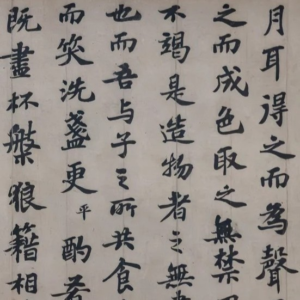 月耳得之而為聲
之而成色取之無禁
不竭是造物者之無
也而吾与子之所共食
而笑洗盞更平酌肴
既盡杯槃狼籍相